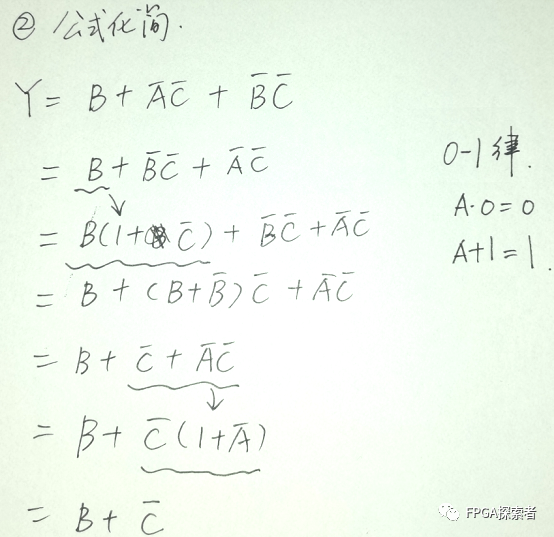 ② 公式化简.
Y = B + A̅C̅ + B̅C̅
= B + B̅C̅ + A̅C̅
= B(1+C̅) + B̅C̅ + A̅C̅
= B + (B+B̅)C̅ + A̅C̅
= B + C̅ + A̅C̅
= B + C̅(1+A̅)
= B + C̅
0-1律.
A·0=0
A+1=1.
FPGA探索者